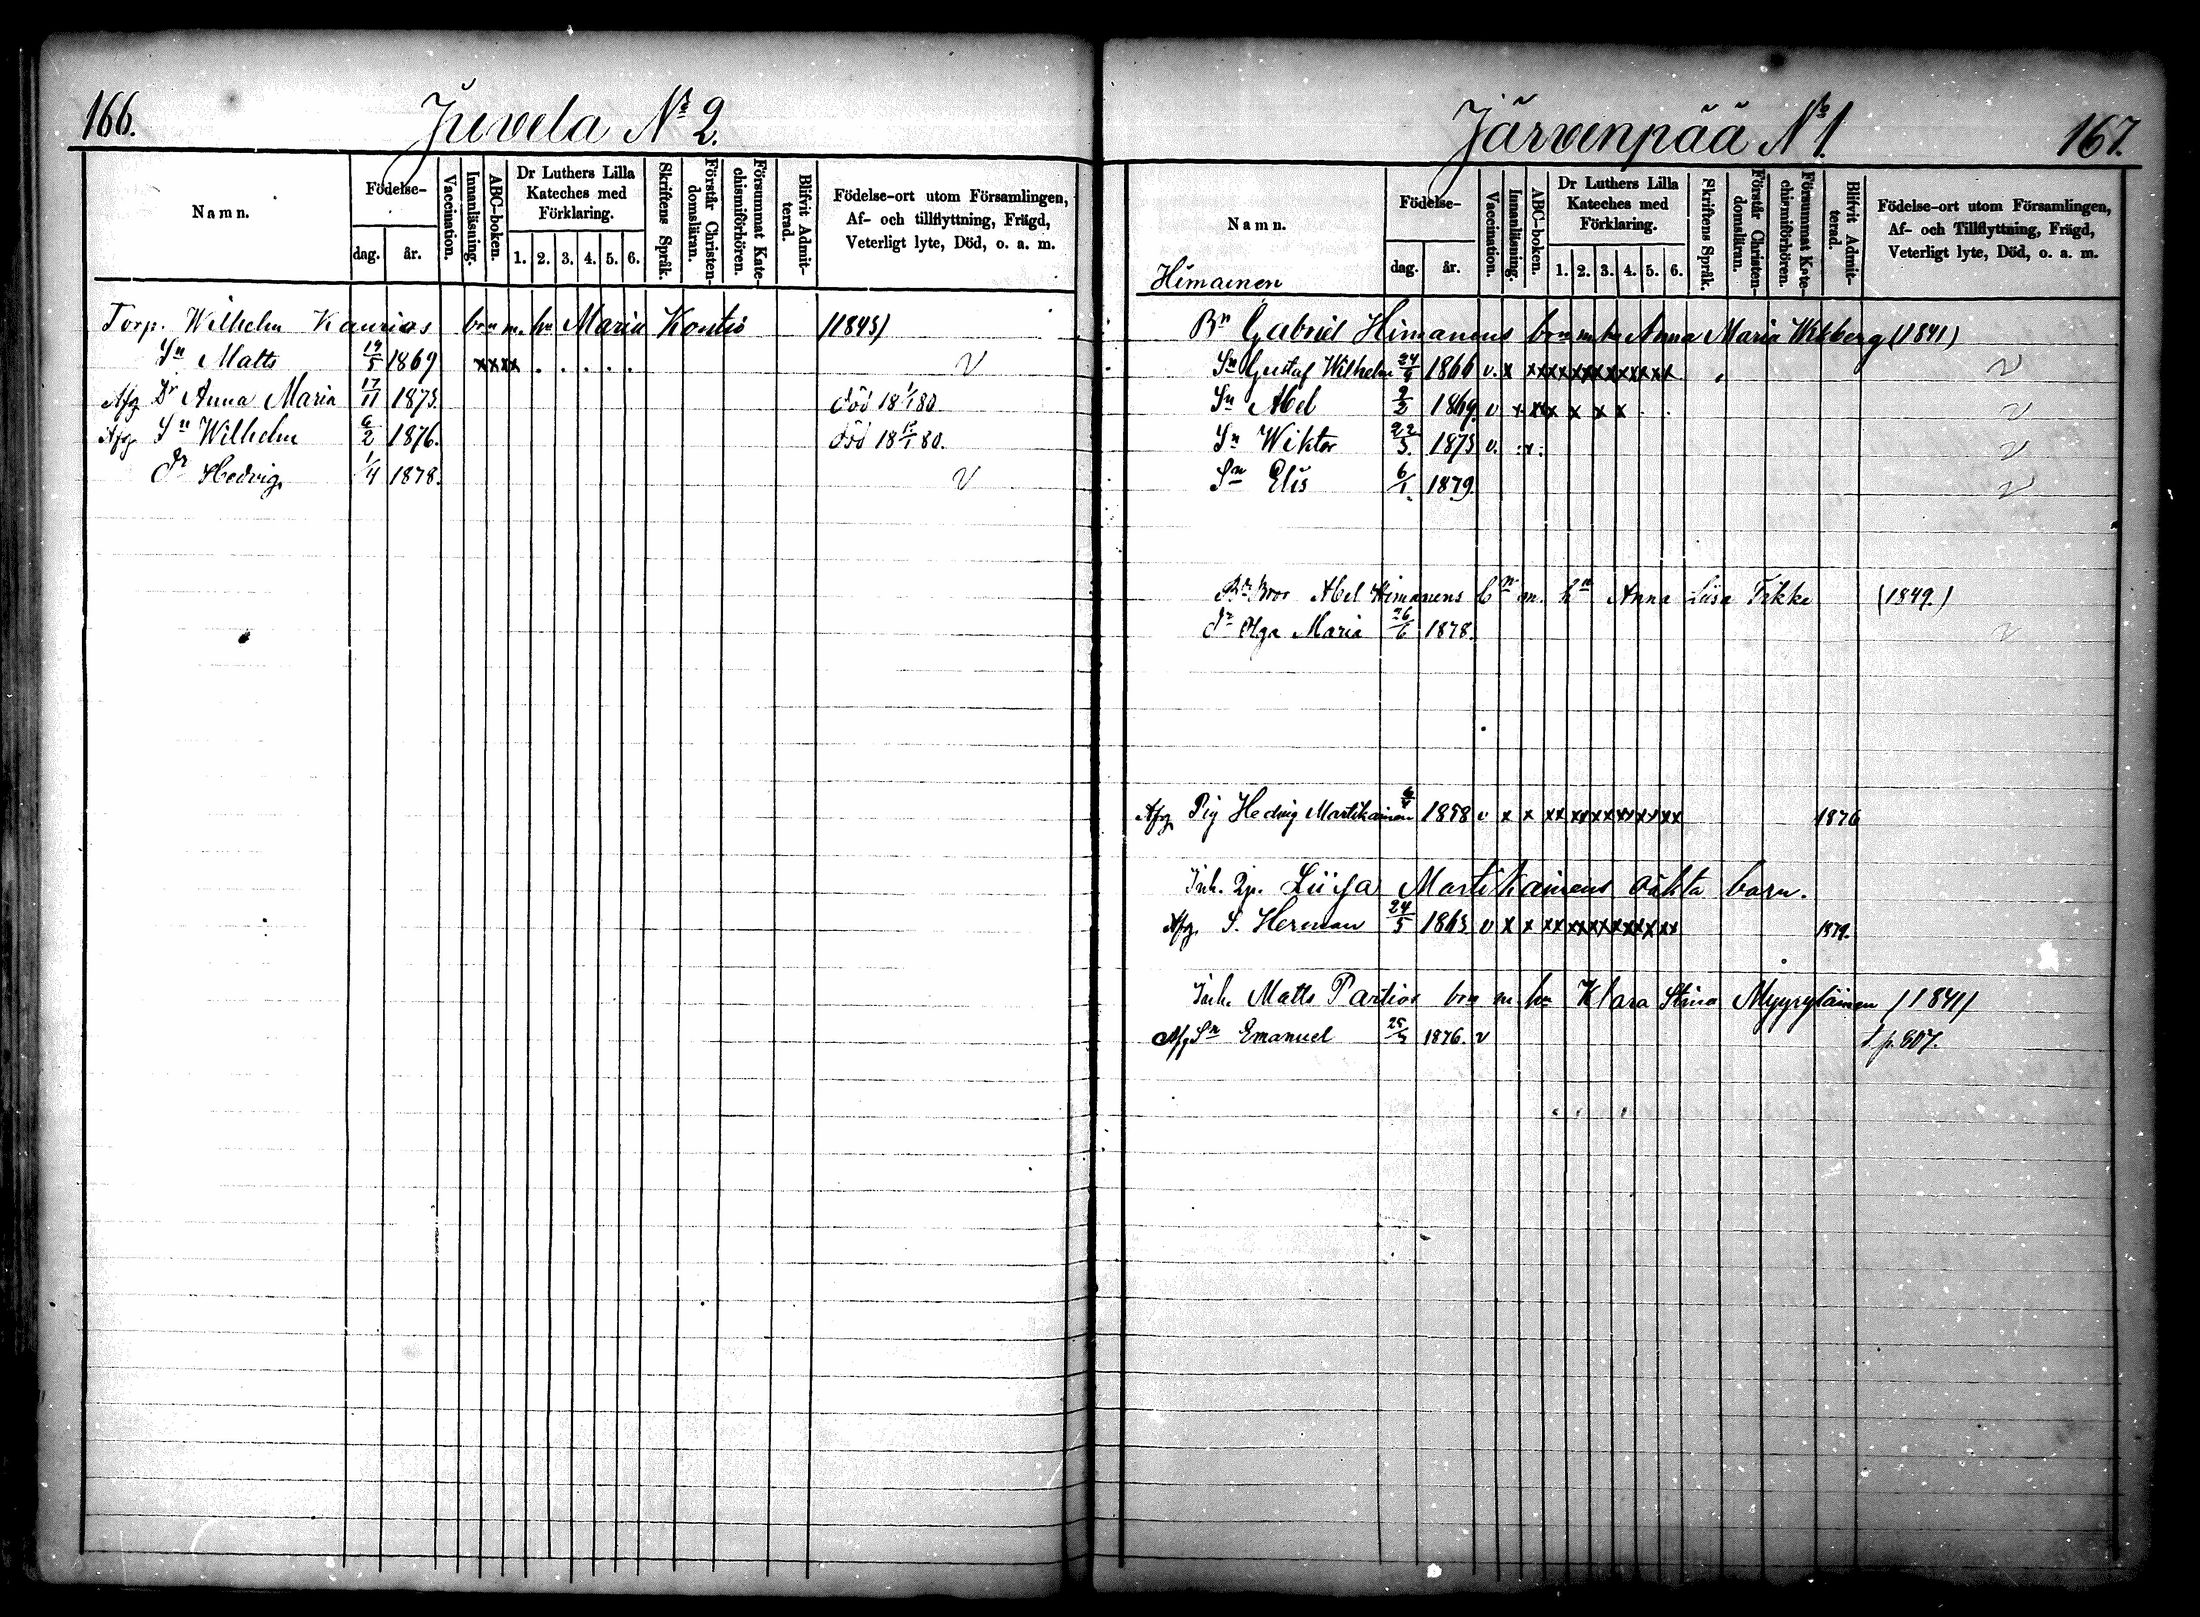 166.
Juvela No 2.
Namn.
Födelse-
dag.
år.
Vaccination.
Innanläsning.
ABC-boken.
Dr Luthers Lilla
Kateches med
Förklaring.
1. 2. 3. 4. 5. 6.
Skriftens Språk.
Förstår Christen-
domsläran.
Försummat Kate-
chismiförhören.
Blifvit Admit-
terad.
Födelse-ort utom Församlingen,
Af- och tillflyttning, Frägd,
Veterligt lyte, Död, o. a. m.
Torp. Wilhelm Kaurias brn m. hu Maria Kontio (1843)
Sn Matts 19/5 1869 xxxx . . . . . v
Afg Dr Anna Maria 17/11 1873. död 18 1/1 80.
Afg. Sn Wilhelm 6/2 1876. död 18 /1 80.
Dr Hedvig 1/4 1878. v
Järvenpää No 1.
167.
Namn.
Himainen
Födelse-
dag.
år.
Vaccination.
Innanläsning.
ABC-boken.
Dr Luthers Lilla
Kateches med
Förklaring.
1. 2. 3. 4. 5. 6.
Skriftens Språk.
Förstår Christen-
domsläran.
Försummat Kate-
chismiförhören.
Blifvit Admit-
terad.
Födelse-ort utom Församlingen,
Af- och Tillflyttning, Frägd,
Veterligt lyte, Död, o. a. m.
Bn Gabriel Himanens brn m hu Anna Maria Wikberg (1841)
Sn Gustaf Wilhelm 24/9 1866 v. x xxxxxxxxxxxxx v
Sn Abel 2/2 1869. v x xxx x x x . . v
Sn Wiktor 22/3. 1873 v. :x: v
Sn Elis 6/1. 1879. v
Bn Bror Abel Himanens bn m. hn Anna Liisa Tikka (1849.)
Dr Olga Maria 26/6 1878. v
Afg. Pig Hedvig Martikainen 1858 v x x xx xxxxxxxxxx 1876
Inh. Qp. Liisa Martikainens oäkta barn.
Afg. S. Herman 24/5 1863 v x x xx xxxxxxxxxx 1879.
Inh. Matts Partios brn m hu Klara Stina Myyryläinen (1841)
Afg Sn Emanuel 1876. v